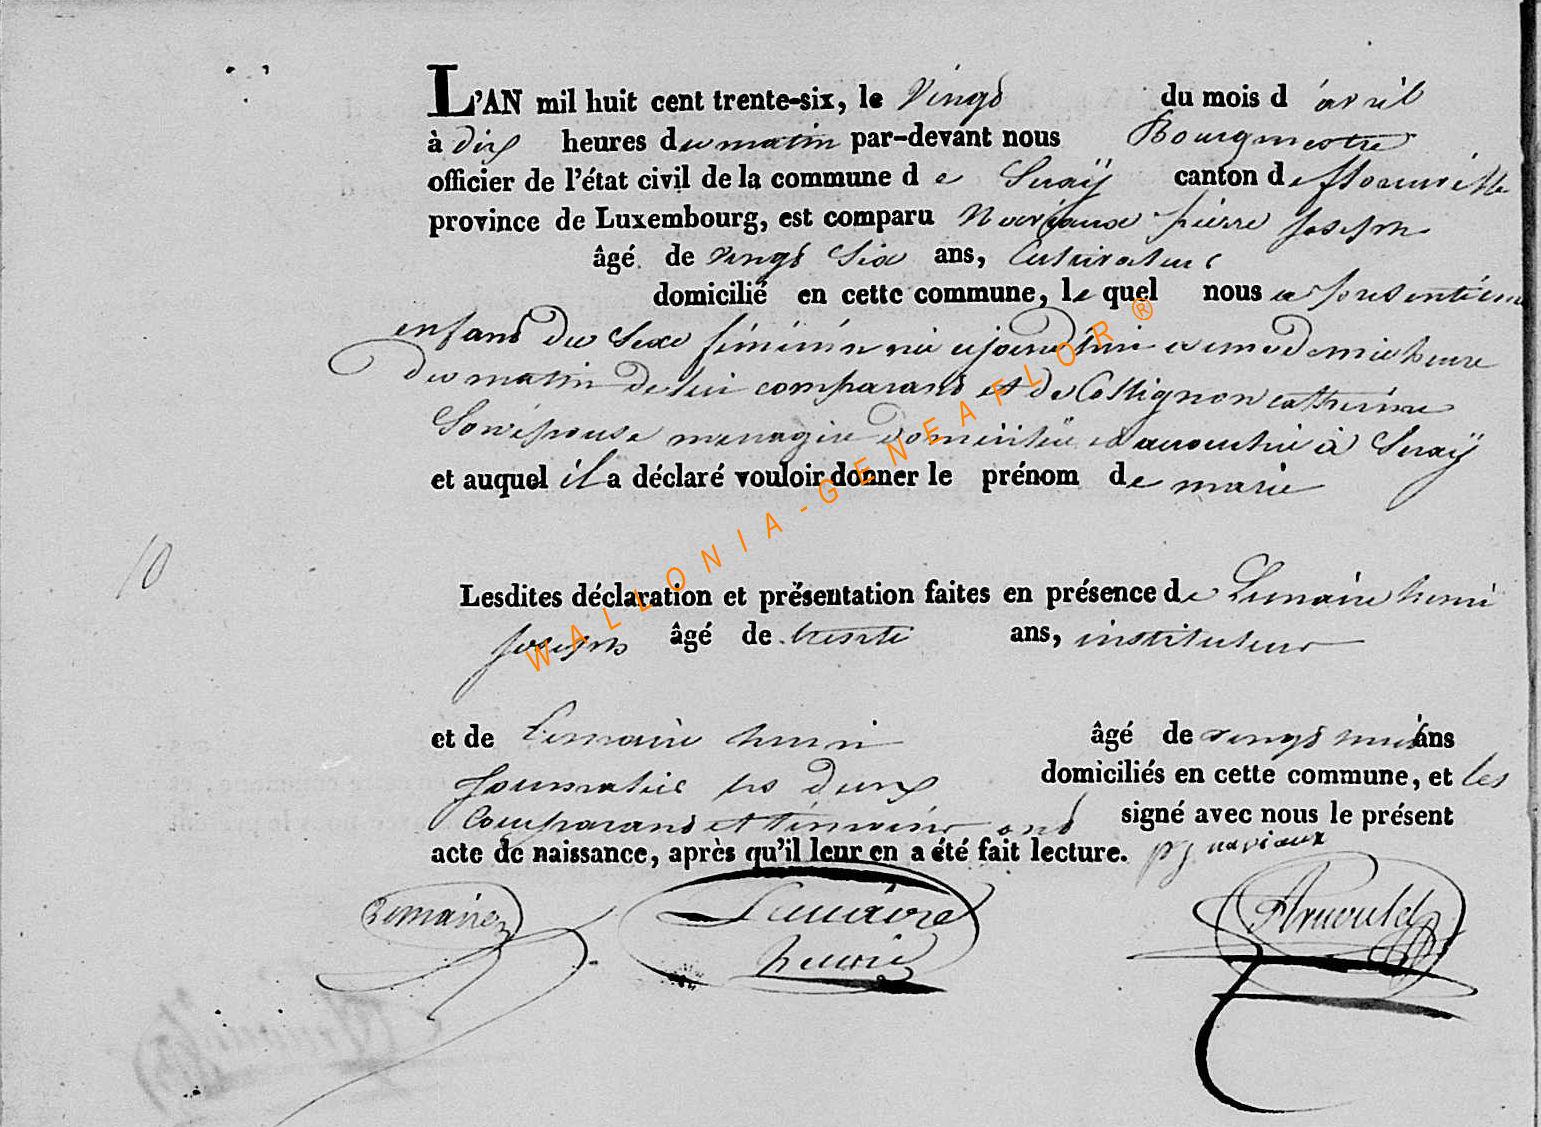 L'AN mil huit cent trente-six, le Vingt du mois d'avril
à dix heures du matin par-devant nous Bourgmestre
officier de l'état civil de la commune de canton de
province de Luxembourg, est comparu Naviaux pierre joseph
âgé de vingt six ans, Cultivateur
domicilié en cette commune, le quel nous a présenté un
enfant du Sexe féminin née aujourd'hui a une demie heure
du matin de lui comparant et de Collignon catherine
Son épouse menagere domiciliée à
et auquel il a déclaré vouloir donner le prénom de marie
10
Lesdites déclaration et présentation faites en présence de Lemaire henri
joseph âgé de trente ans, instituteur
et de Lemaire henri âgé de vingt huit ans
journalier les deux domiciliés en cette commune, et les
Comparant et témoins ont signé avec nous le présent
acte de naissance, après qu'il leur en a été fait lecture. pj naviaux
Lemaire Lemaire henri Arnould
WALLONIA-GENEAFLOR®